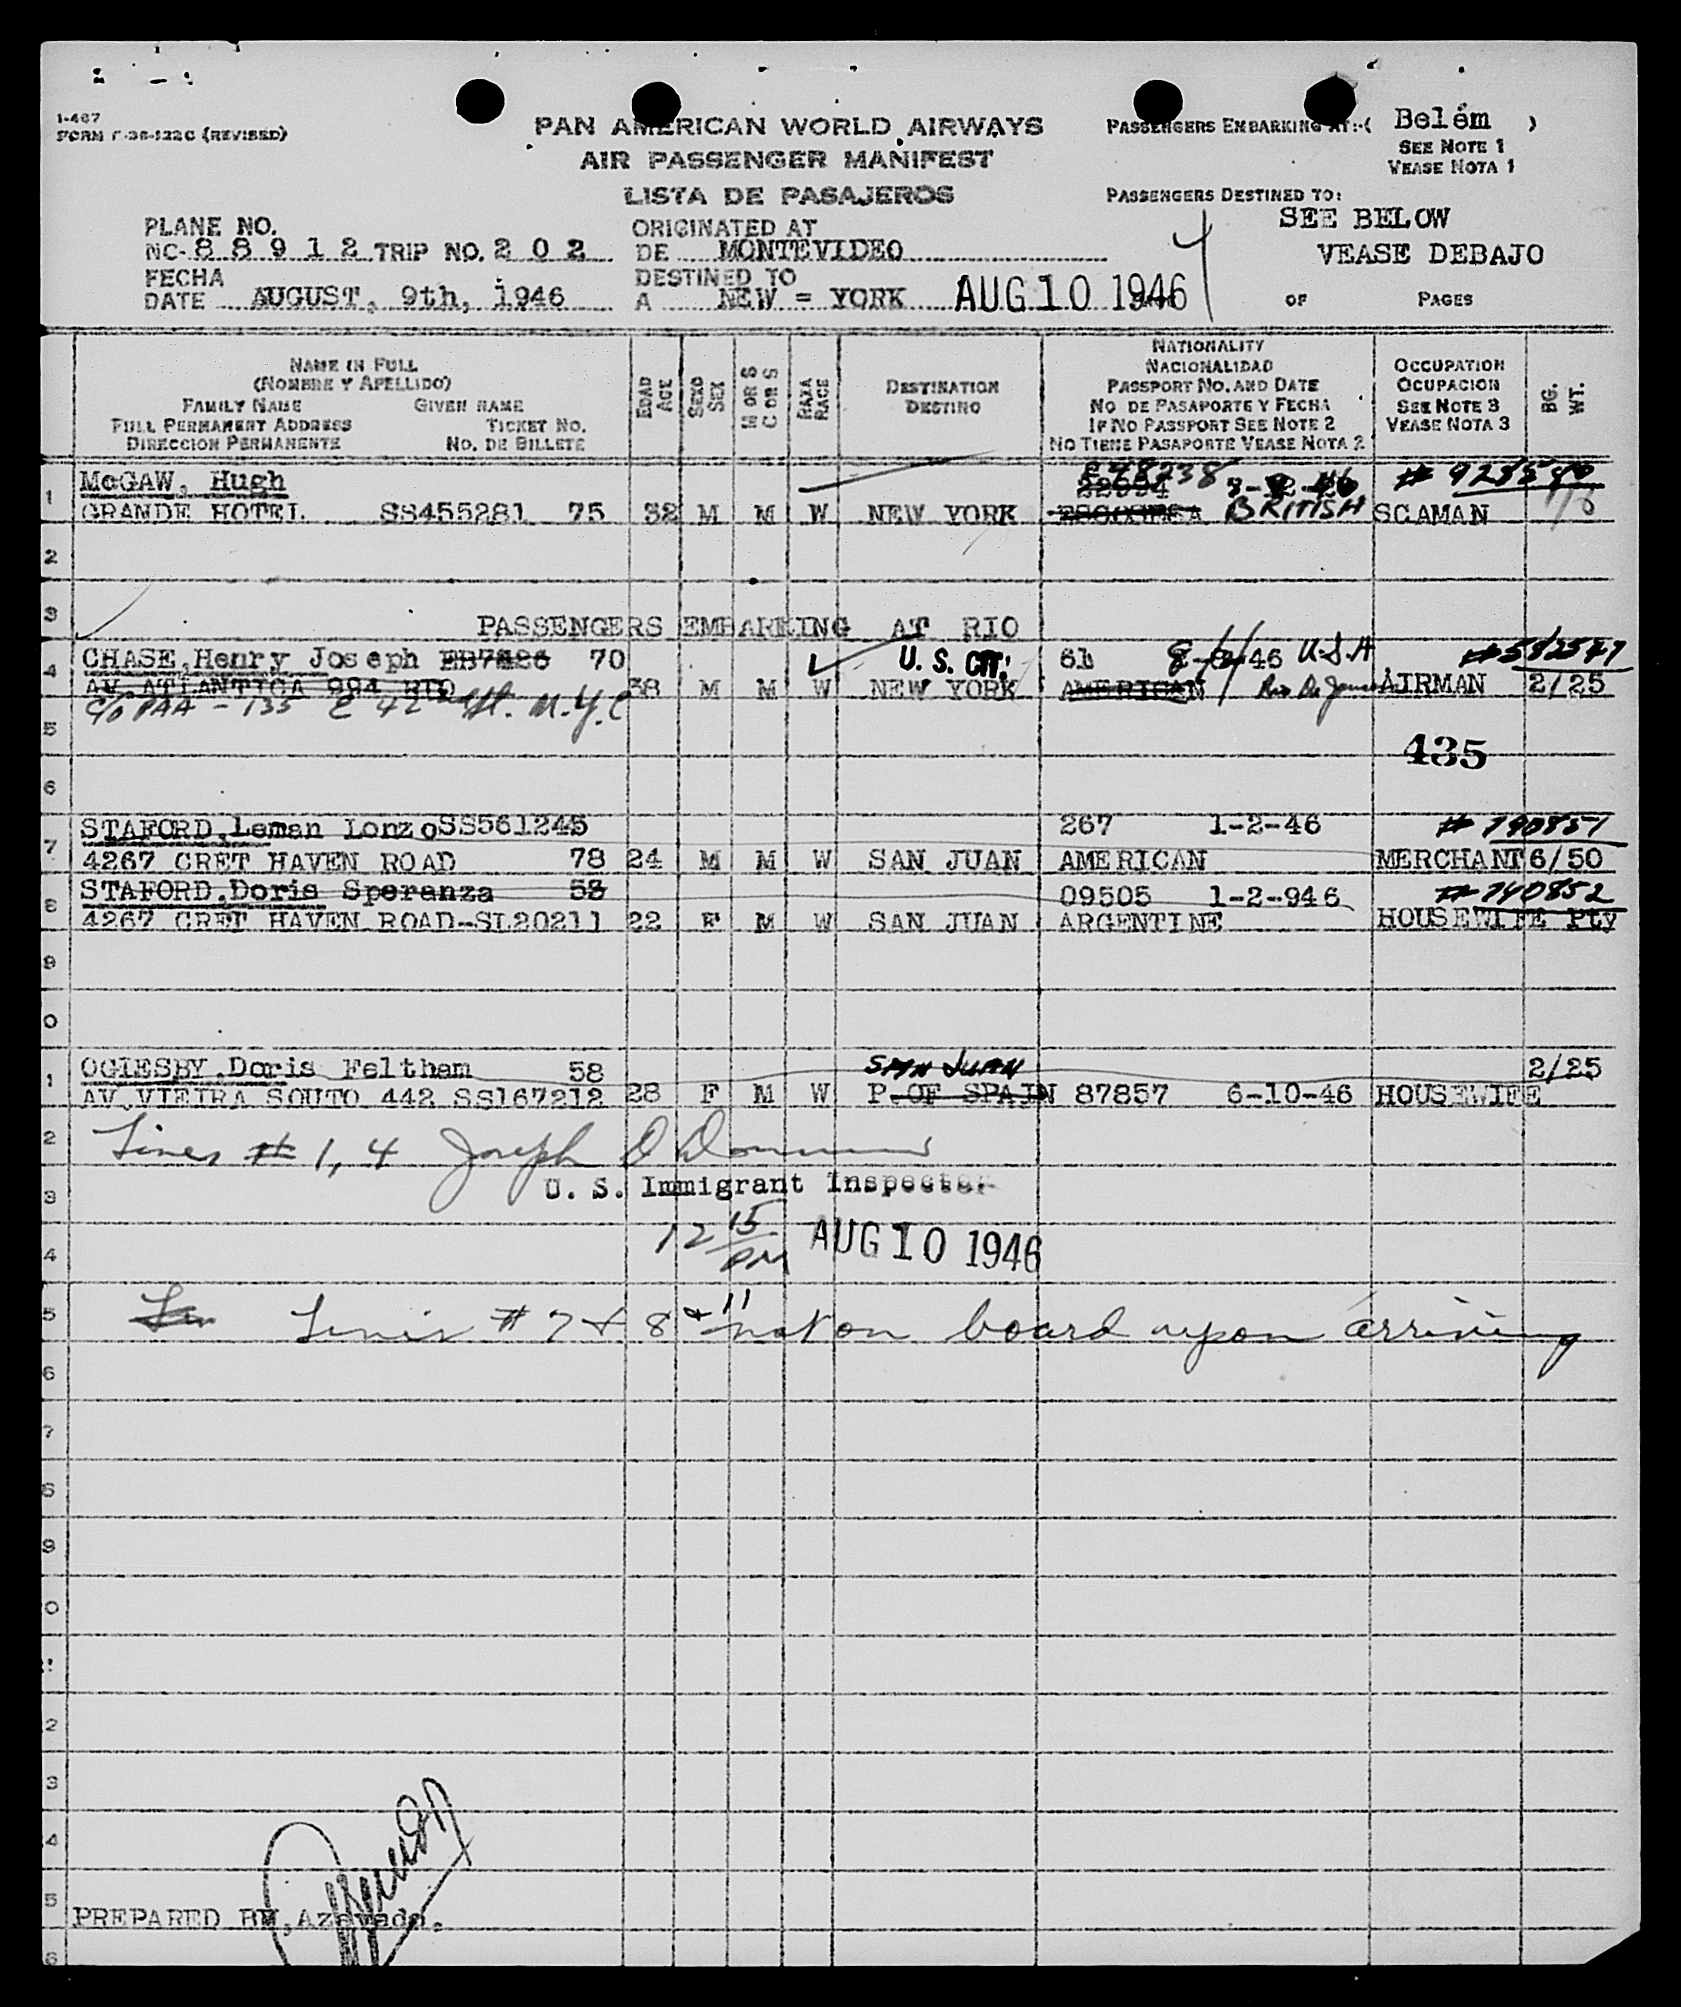 1-467
FORM F-36-122C (REVISED)
PAN AMERICAN WORLD AIRWAYS
AIR PASSENGER MANIFEST
LISTA DE PASAJEROS
PASSENGERS EMBARKING AT:-( Belém )
SEE NOTE 1
VEASE NOTA 1
PASSENGERS DESTINED TO:
SEE BELOW
VEASE DEBAJO
PLANE NO.
NC- 8 8 9 1 2 TRIP NO. 2 0 2
FECHA
DATE AUGUST, 9th, 1946
ORIGINATED AT
DE MONTEVIDEO
DESTINED TO
A NEW = YORK
AUG 10 1946
OF PAGES
NAME IN FULL
(NOMBRE Y APELLIDO)
FAMILY NAME GIVEN NAME
FULL PERMANENT ADDRESS TICKET NO.
DIRECCION PERMANENTE NO. DE BILLETE
EDAD AGE
SEXO SEX
M OR S
C OR S
RAZA RACE
DESTINATION
DESTINO
NATIONALITY
NACIONALIDAD
PASSPORT NO. AND DATE
NO DE PASAPORTE Y FECHA
IF NO PASSPORT SEE NOTE 2
NO TIENE PASAPORTE VEASE NOTA 2
OCCUPATION
OCUPACION
SEE NOTE 3
VEASE NOTA 3
BG. WT.
McGAW, Hugh
1 GRANDE HOTEL SS455281 75 32 M M W NEW YORK BRITISH SCAMAN
2
3 PASSENGERS EMBARKING AT RIO
CHASE, Henry Joseph 70 U. S. CIT. 61 46 U.S.A #582577
4 AV. ATLANTICA 994 RIO 38 M M W NEW YORK AMERICAN Rio De AIRMAN 2/25
c/o PAA - 135 E 42 St. N.Y.C
5
435
6
STAFORD, Leman Lonzo SS561245 267 1-2-46 # 790851
7 4267 CRET HAVEN ROAD 78 24 M M W SAN JUAN AMERICAN MERCHANT 6/50
STAFORD, Doris Speranza 58 09505 1-2-946 # 740852
8 4267 CRET HAVEN ROAD--SL20211 22 F M W SAN JUAN ARGENTINE HOUSEWIFE Pty
9
0
OGLESBY, Doris Feltham 58 SAN JUAN 2/25
1 AV. VIEIRA SOUTO 442 SS167212 28 F M W P. OF SPAIN 87857 6-10-46 HOUSEWIFE
2 Lines # 1, 4 Joseph
3 U. S. Immigrant Inspector
4 12 15 PM AUG 10 1946
5 Lines # 7 & 8 & 11 not on board upon arriving
6
7
8
9
0
2
3
4
5 PREPARED BY, Azevedo.
6